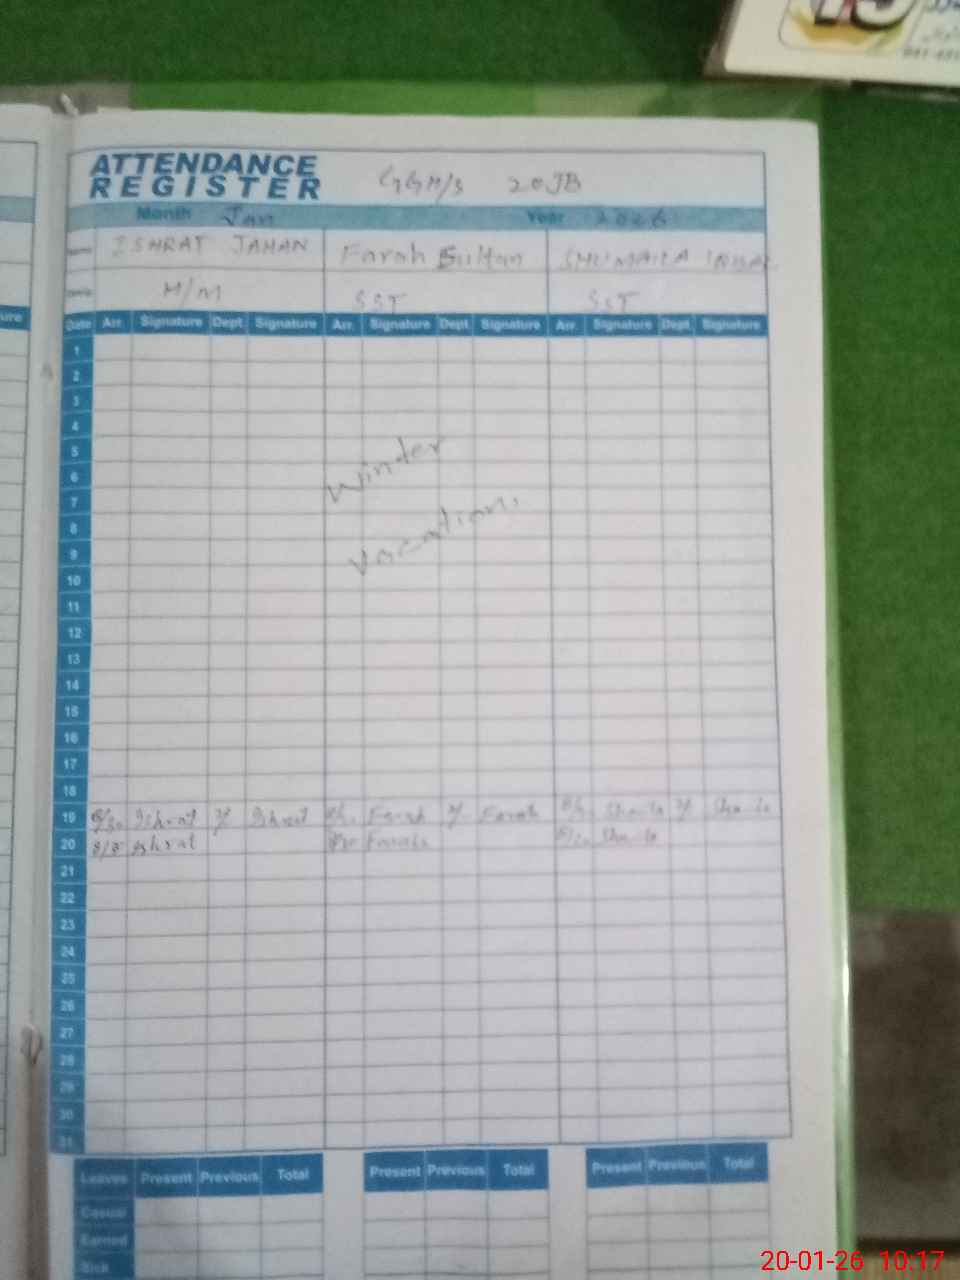 15
ATTENDANCE
REGISTER
GGH/S 20JB
Month Jan Year 2026
ISHRAT JAHAN Farah Sultan SHUMAILA IQBAL
H/M SST SST
Date Arr. Signature Dept. Signature Arr. Signature Dept. Signature Arr. Signature Dept. Signature
1
2
3
4
5
6
7
8
9
10
11
12
13
14
15
16
17
18
Winter
Vacation.
19 Ishrat Ishrat Farah Farah
20 Ishrat Farah
21
22
23
24
25
26
27
28
29
30
31
Leaves Present Previous Total Present Previous Total Present Previous Total
Casual
Earned
Sick
20-01-26 10:17